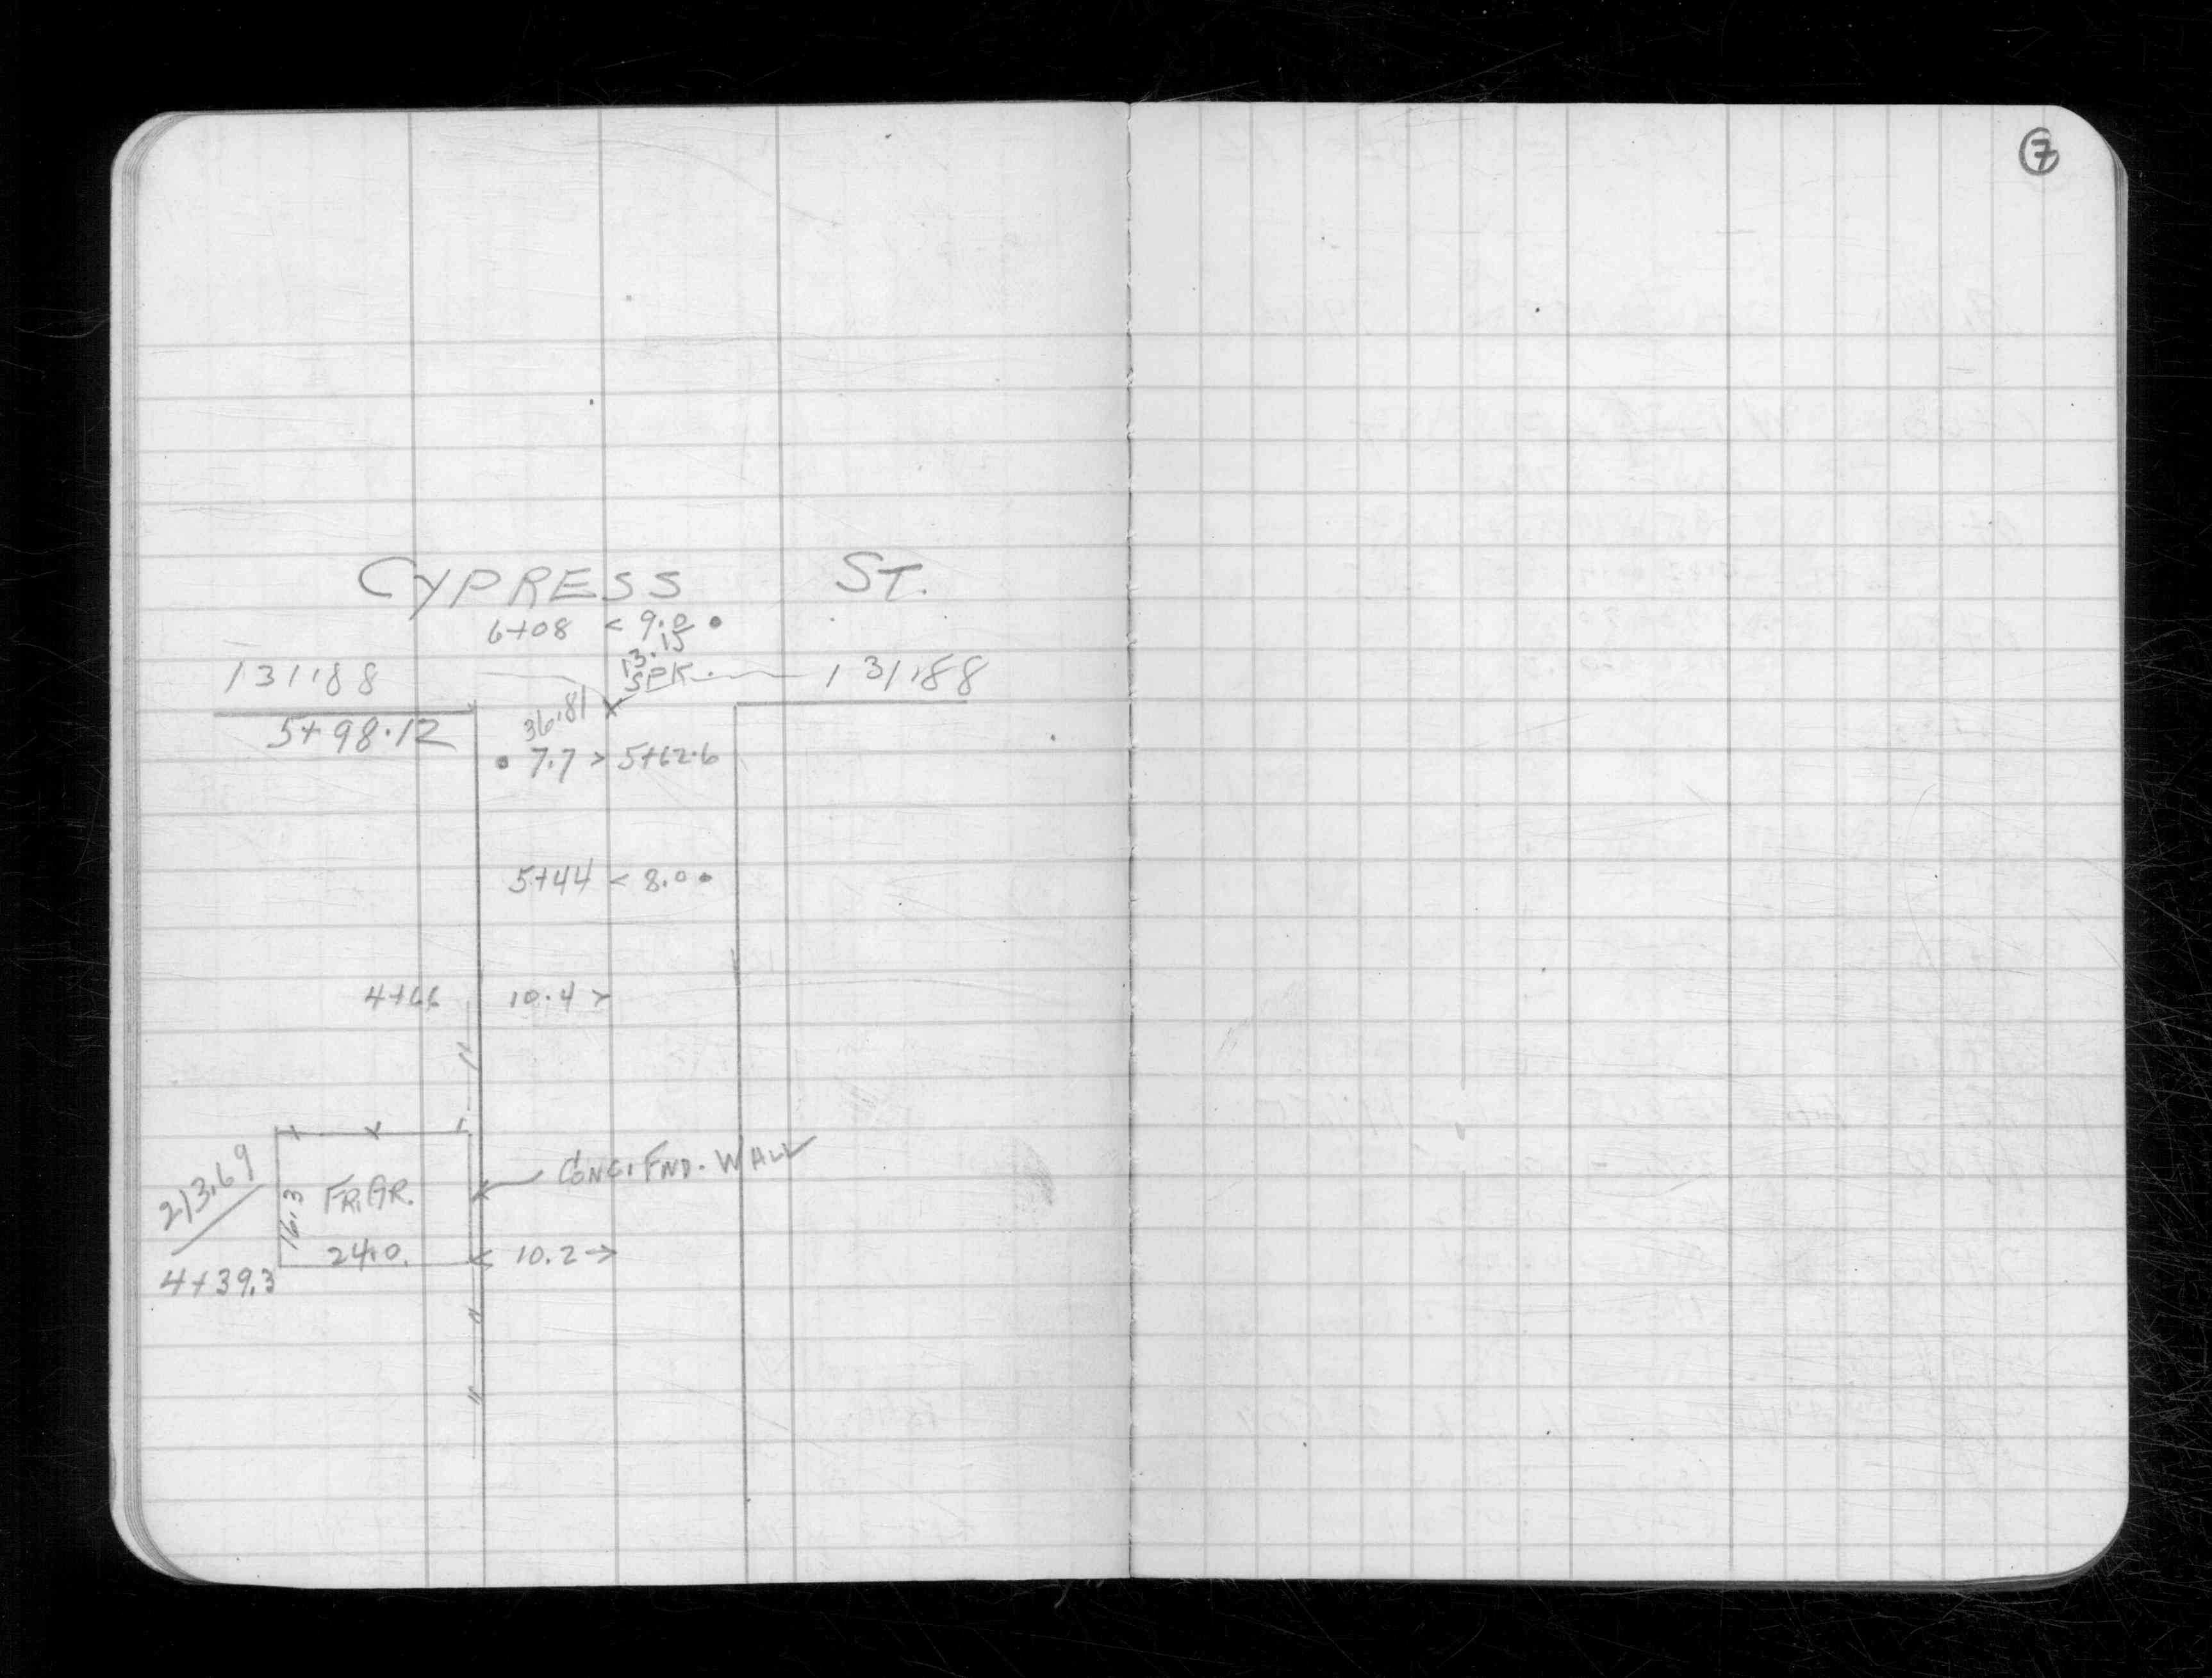 7
CYPRESS ST.
6+08 < 9.0 •
13.15
131.88 SPK. 131.88
36.81
5+98.12
• 7.7 > 5+62.6
5+44 < 8.0 •
4+66 10.4 >
CONC. FND. WALL
213.69
16.3 FR. GR.
24.0. < 10.2 >
4+39.3